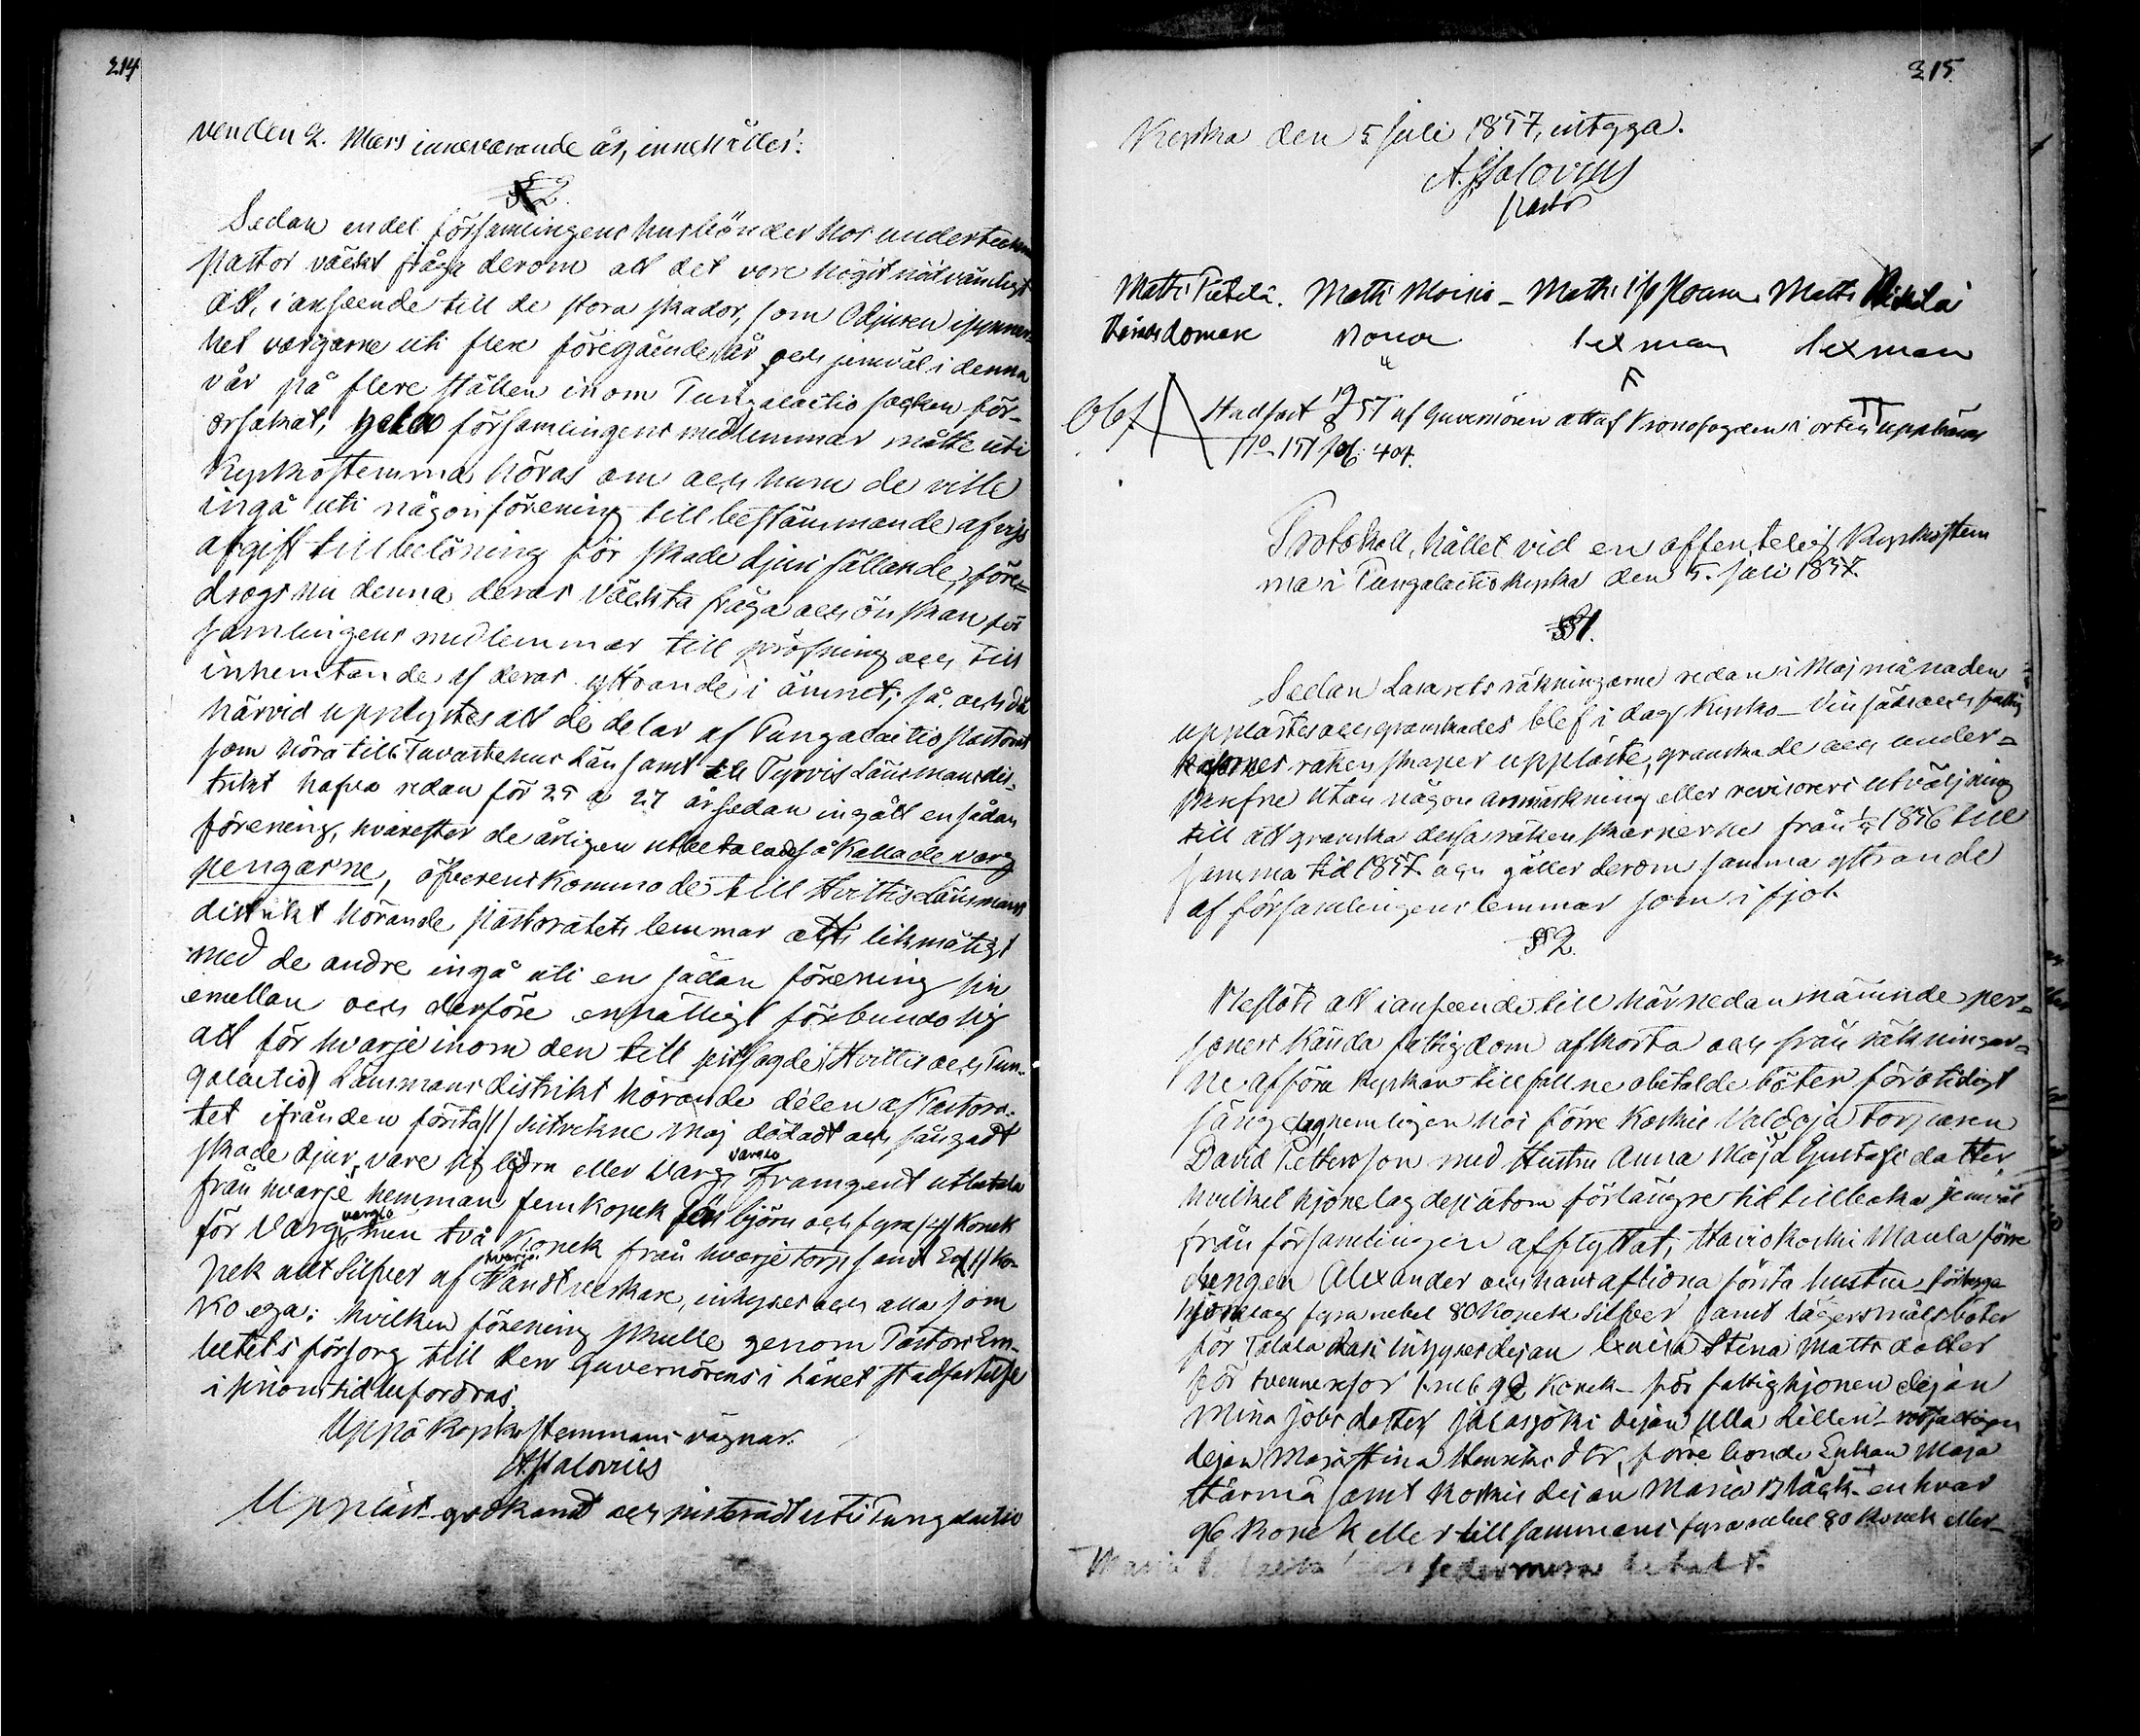 214
ven den 2. Mars innevarande år, innehåller:
§ 2.
Sedan en del församlingens husbönder hos underteckn
pastor väckt fråga derom att det vore högst nödvändigt
att, i anseende till de stora skador, som Odjuren i synner
het vargarne uti flere föregående år och jemväl i denna
vår på flere ställen inom Pungalaitio socken för-
orsakat, församlingens medlemmar måtte uti
Kyrkostemma höras om och huru de ville
ingå uti någon förening till bestämmande af viss
afgift till belöning för skade djurs fällande, före-
drogs nu denna deras väckta fråga och önskan för
samlingens medlemmar till pröfning och till
inhemtande af deras yttrande i ämnet; så och då
härvid upplystes att de delar af Pungalaitio Pastorat
som höra till Tavastehus Län samt till Tyrvis Länsmansdis-
trikt hafva redan för 25 a 27 år sedan ingått en sådan
förening, hvarefter de årligen utbetala de så kallade varg
pengarne, öfverenskommo de till Hvittis Länsmans
distrikt hörande pastoratets lemmar att likmätigt
med de andre ingå uti en sådan förening sin
emellan och derföre enhälligt förbundo sig
att för hvarje inom den till sistsagde Hvittis och Pun-
galaitio Länsmans distrikt hörande delen af Pastora-
tet ifrån den första /1/ sistvekne Maj dödadt och fångadt
skade djur, vare sig björn eller varg, varglo framgent utbetala
från hvarje hemman fem kopek för björn och fyra /4/ Kopek
för varg, varglo men två Kopek från hvarje torp samt En /1/ ko-
pek allt Silfver af hvarje Handtverkare, inhyses och alla som
ko ega: hvilken förening skulle genom Pastors Em-
betets försorg till Herr Guvernörens i Länet stadfästelse
i sinom tid befordras.
Uppå Kyrkostemmans vägnar.
A. Salovius
Uppläst godkändt och justeradt uti Pungalaitio
315.
Kyrka den 5 Juli 1857, intyga.
A. Salovius
pastor
Matti Moisio - Matti
domare sexman sexman
Stadfäst af Guvernören att af Kronofogden i orten uppbäras
No 151 fol. 404.
Protokoll, hållet vid en offentelig Kyrkostem
ma i Pungalaitio kyrka den 5. Juli 1857.
§ 1.
Sedan Lasaretsräkningarne redan i Maj månaden
upplästes och granskades blef i dag Kyrko- Vinsäds och fattig
kassornes räkenskaper uppläste, granskade och under-
skrefne utan någon anmärkning eller revisorers utväljning
till att granska dessa räkenskaperne från 1856 till
samma tid 1857 och gäller derom samma yttrande
af församlingens lemmar som i fjol.
§ 2.
Beslöts att i anseende till härnedan nämnde per-
soners kända fattigdom afkorta och från räkningar-
ne afföra kyrkan tillfallne obetalde böter för otidigt
sängelag, nemligen hos förre Koskis Valdoja Torparen
David Pettersson med Hustru Anna Maja Gustafsdotter
hvilket hjonelag dessutom för längre tid tillbaka jemväl
från församlingen afflyttat, Haviokoski Maula förre
drengen Alexander och hans aflidna första hustru förtyga
hjonelag fyra rubel 80 Kopek Silfver samt lägersmålsböter
för Talala Rasi inhyses dejan Lovisa Stina Matts dotter
för tvenne resor 1 rub 92 Kopek - för fattighjonen dejan
Mina Jobsdotter, Jalasjoki dejan Ulla Lillen -
dejan Maja Stina Henriks dtr, förre bonde Enkan Maja
Härmä samt Koskis dejan Maria Bläck - en hvar
96 kopek eller tillsammans fyra rubel 80 kopek eller
Maria sedermera betalt.